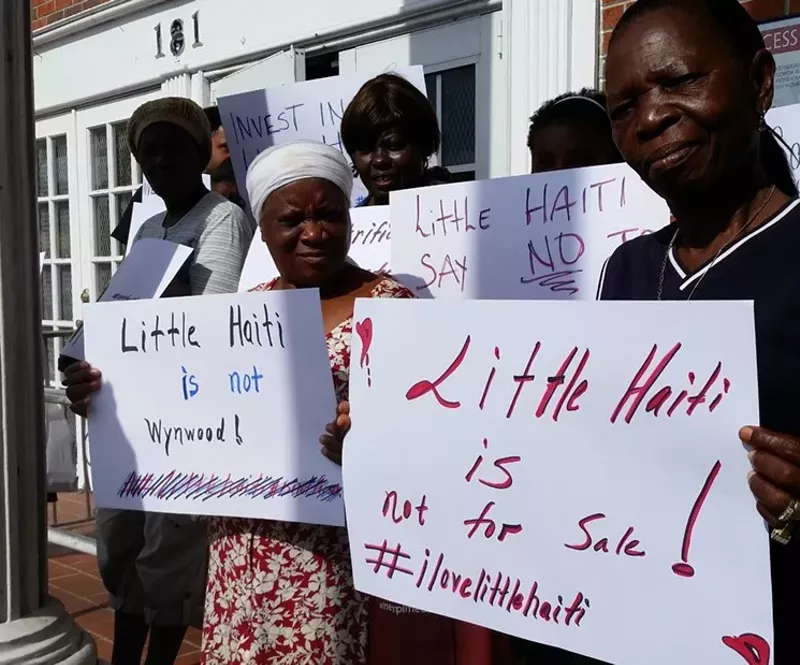 181
CESS
INVEST IN
LittLe HAITI
SAY NO TO
Little Haiti
is not
Wynwood!
Little Haiti
is
not for Sale!
#ilovelittlehaiti